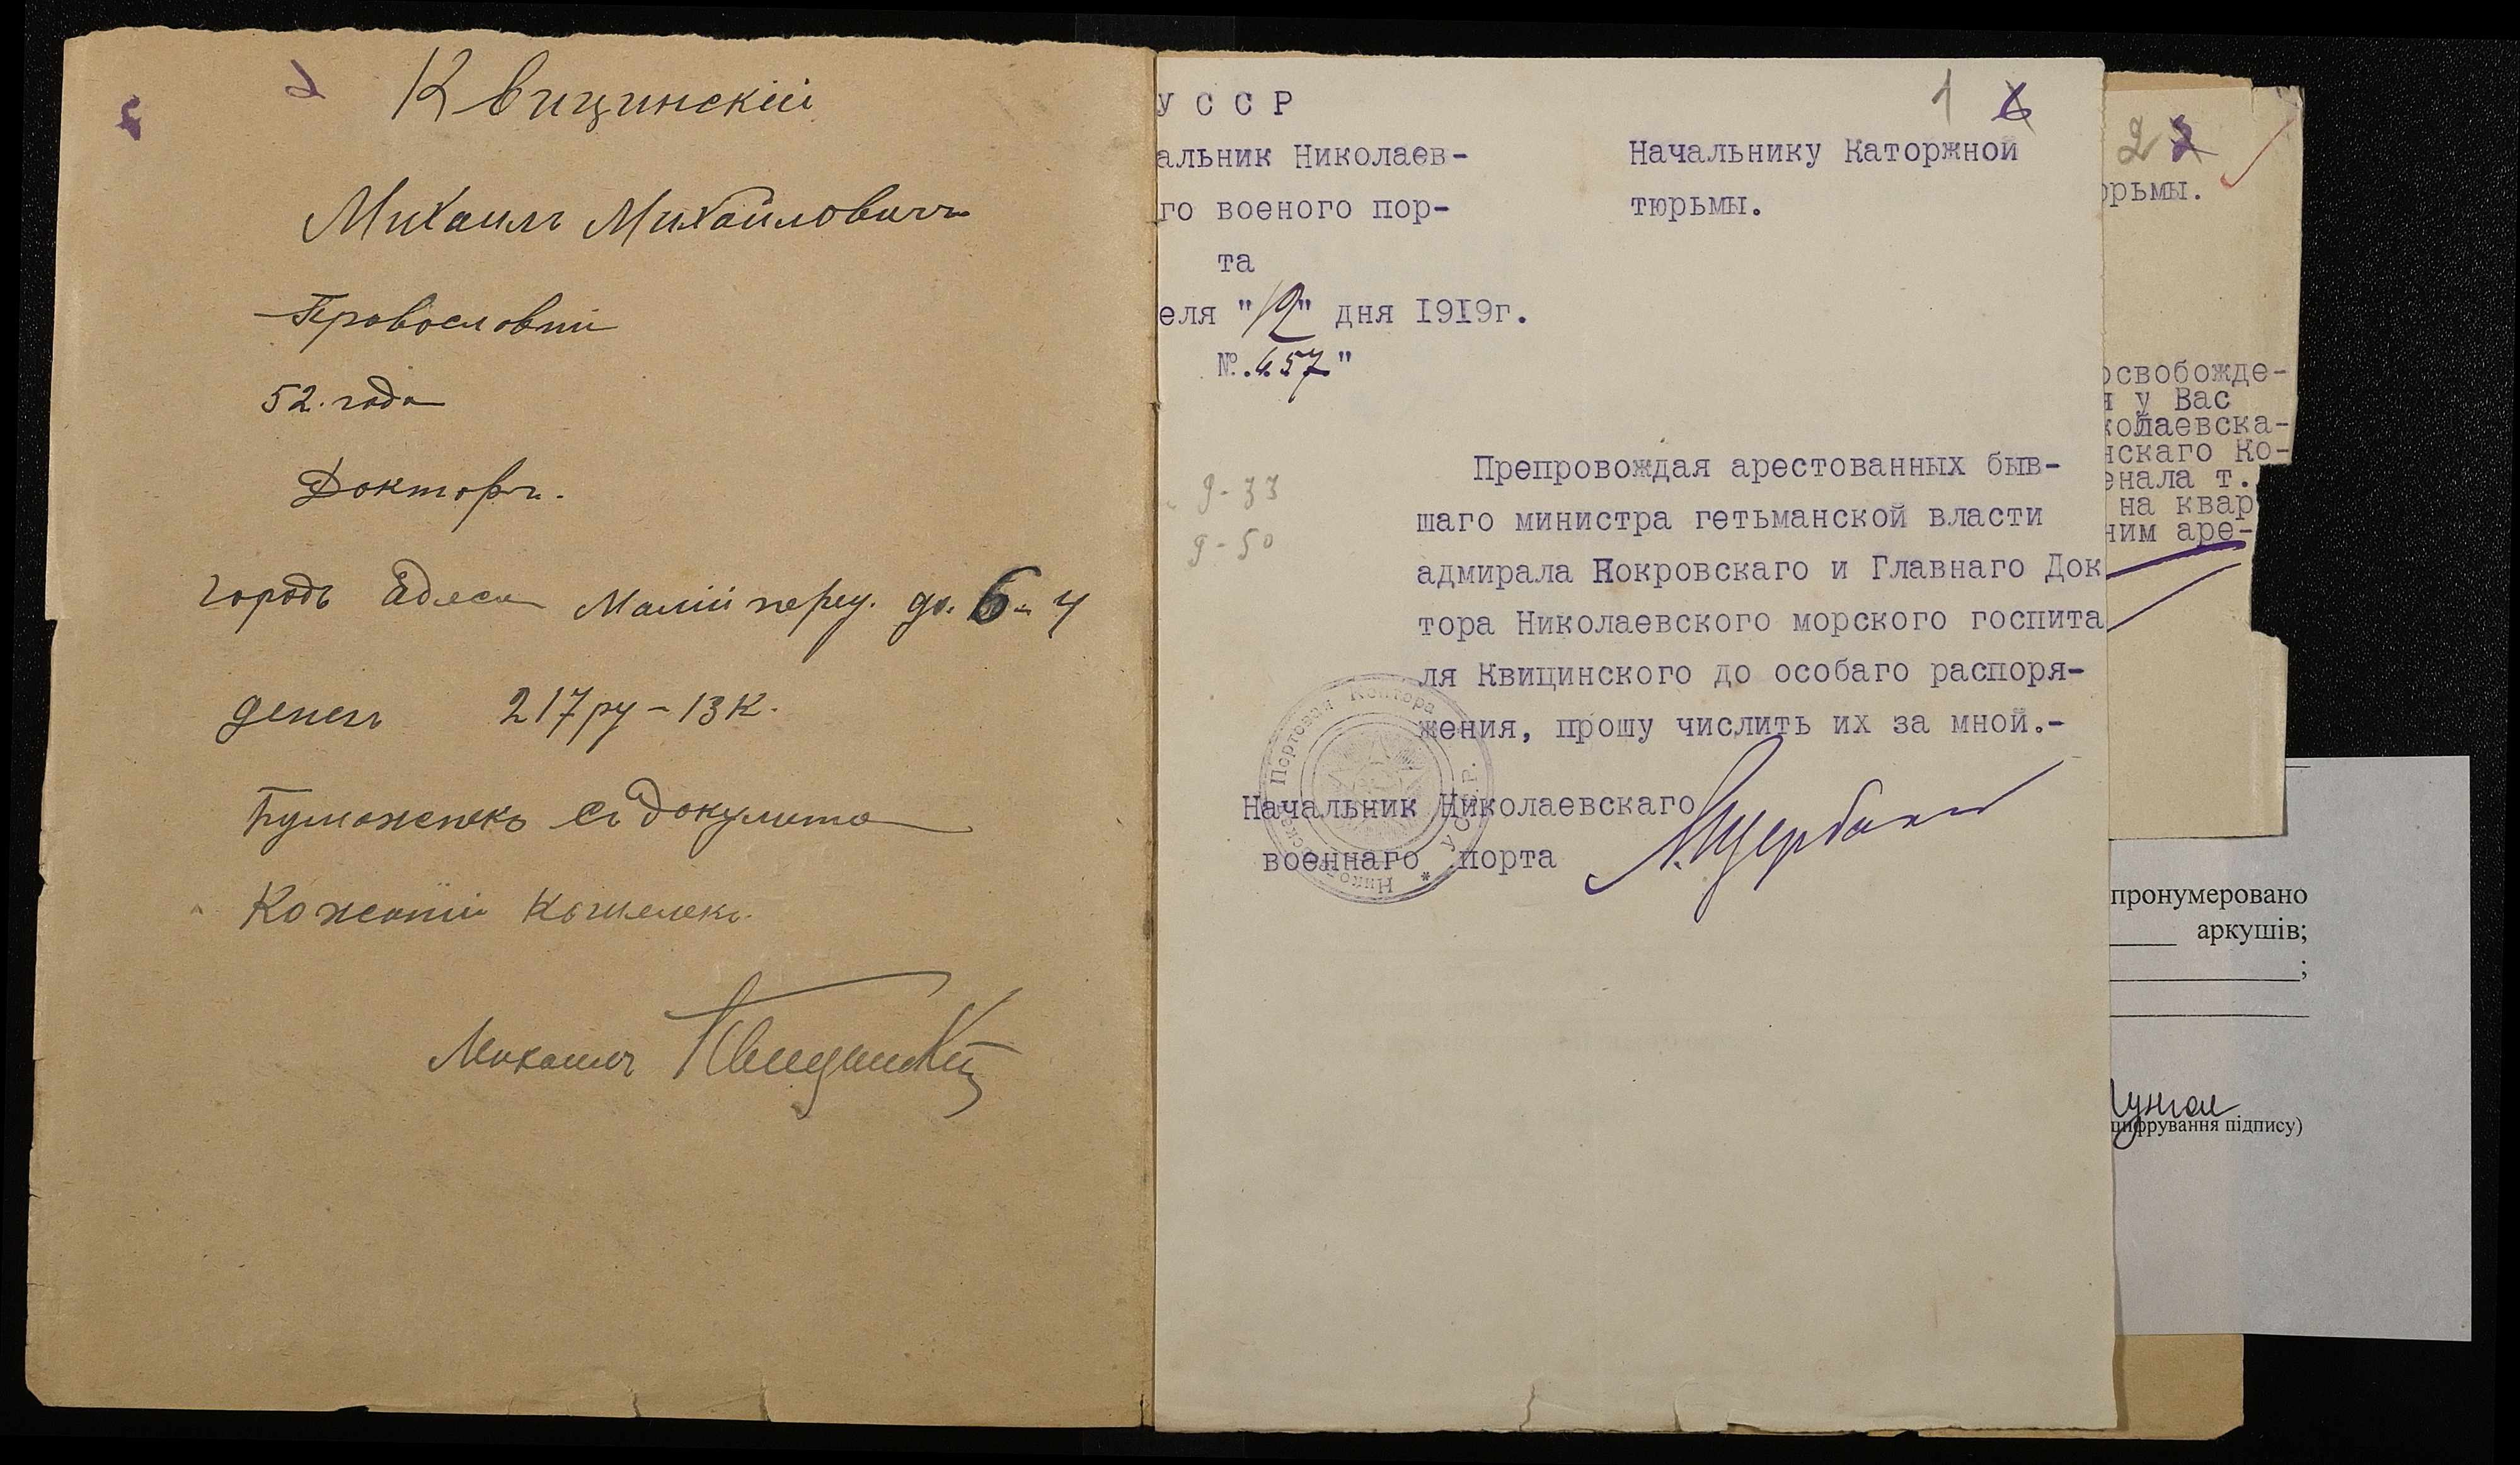 Квицинскій
Михаилъ Михайловичъ
Провословній
52. года
Докторъ.
городъ Адеса Малій переу. до. 6 - 4
денегъ 217 ру - 13 к.
Буможнекъ съ докумета
Кожаній кошелекъ.
Михаилъ Квицинскій
1 6
У С С Р
альник Николаев-
го военого пор-
та
еля "12" дня 1919г.
№. 457"
Начальнику Каторжной
тюрьмы.
9-33
9-50
Препровождая арестованных быв-
шаго министра гетьманской власти
адмирала Покровскаго и Главнаго Док
тора Николаевского морского госпита
ля Квицинского до особаго распоря-
жения, прошу числить их за мной.-
Начальник Николаевскаго
военнаго порта
А. Щербаков
Портовая Контора
У.С.С.Р.
2
орьмы.
освобожде-
я у Вас
колаевска-
нскаго Ко-
енала т.
на квар
ним аре-
пронумеровано
аркушів;
;
цифрування підпису)